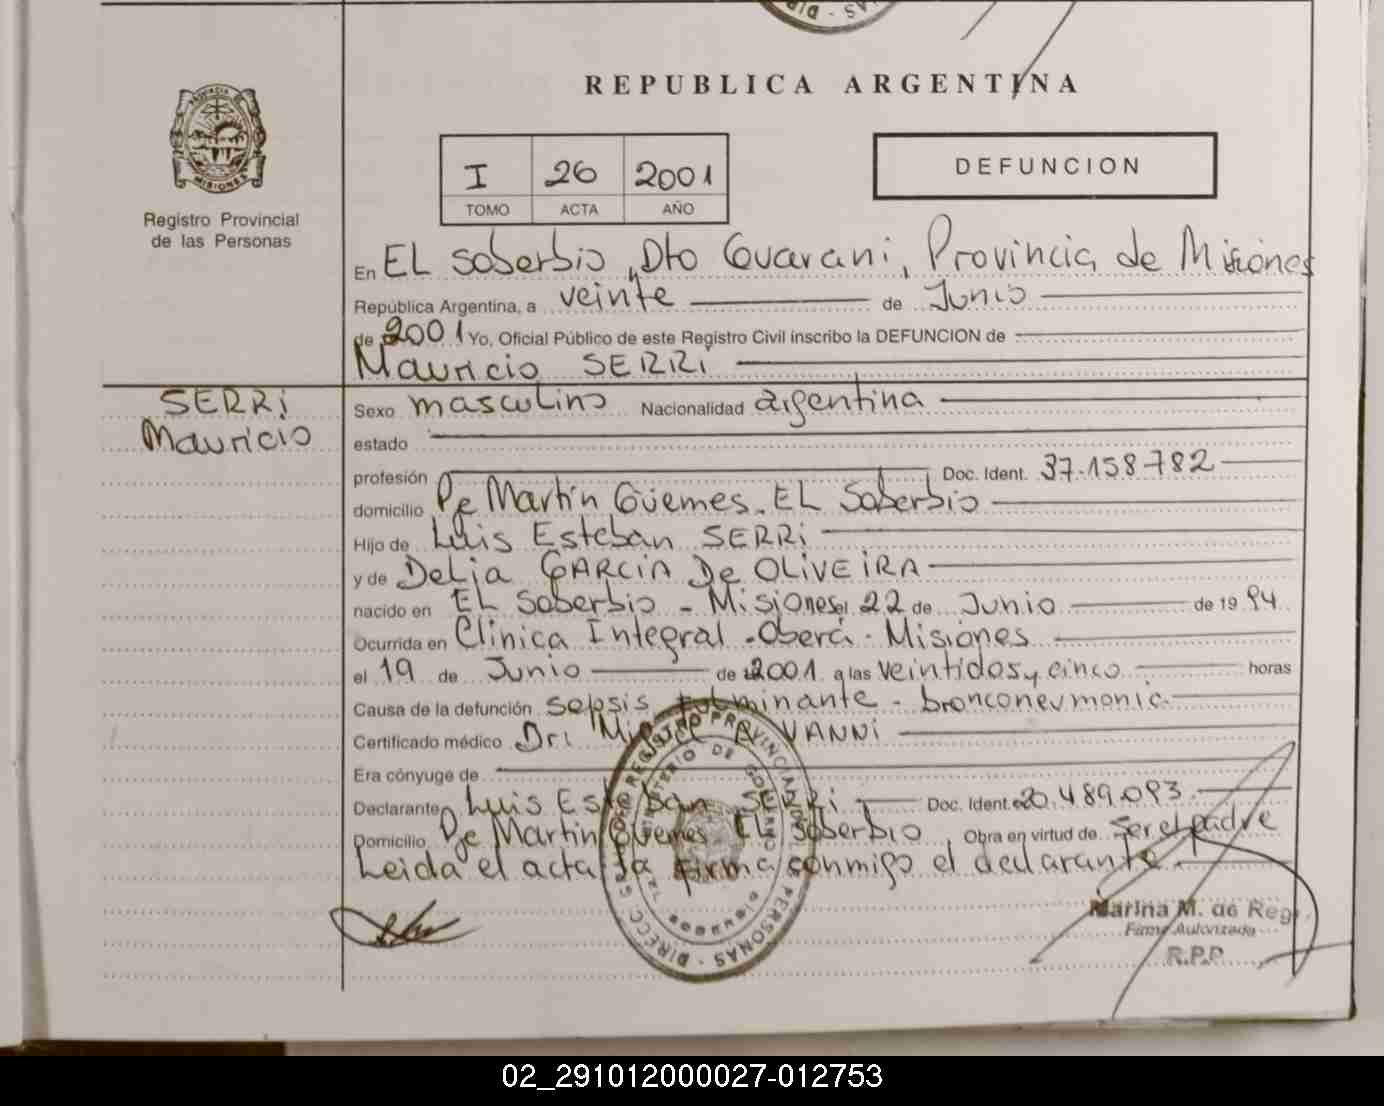 DIRE - S AS
REPUBLICA ARGENTINA
PROVINCIA
MISIONES
Registro Provincial
de las Personas
I 26 2001
TOMO ACTA AÑO
DEFUNCION
En EL Soberbio, Dto Guarani, Provincia de Misiones
República Argentina, a veinte de Junio
de 2001 Yo, Oficial Público de este Registro Civil inscribo la DEFUNCION de
Mauricio SERRi
SERRi
Mauricio
Sexo masculino Nacionalidad argentina
estado
profesión Doc. Ident. 37.158.782
domicilio Pje Martín Güemes. EL Soberbio
Hijo de Luis Esteban SERRi
y de Delia GARCIA De OLIVEIRA
nacido en EL Soberbio - Misiones el 22 de Junio de 1994
Ocurrida en Clínica Integral - Oberá - Misiones
el 19 de Junio de 2001 a las veintidos y cinco horas
Causa de la defunción sepsis fulminante - bronconeumonia
Certificado médico Dr: VANNi
Era cónyuge de
Declarante Luis Esteban SERRi Doc. Ident. 20.489.093
Domicilio Pje Martín Güemes EL Soberbio Obra en virtud de Ser el padre
Leida el acta la firma conmigo el declarante
DIRECC. GRAL. DEL REGISTRO PROVINCIAL DE LAS PERSONAS
MINISTERIO DE GOBIERNO
Marina M. de Reg
Firma Autorizada
R.P.P.
02_291012000027-012753